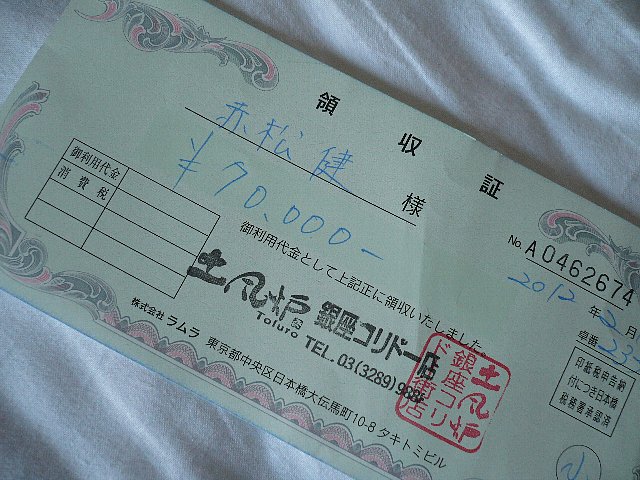 領収証
赤松健 様
¥70,000-
No. A0462674
2012年2月
卓番 233
御利用代金
消費税
御利用代金として上記正に領収いたしました。
土風炉 銀座コリドー店
Tofuro TEL. 03(3289)988
株式会社 ラムラ 東京都中央区日本橋大伝馬町10-8 タキトミビル
土風炉
銀座コリ
ド街店
印紙税申告納
付につき日本橋
税務署承認済